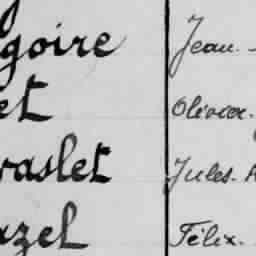 goire Jean.
et Olivier.
raslet Jules.
azel Félix.